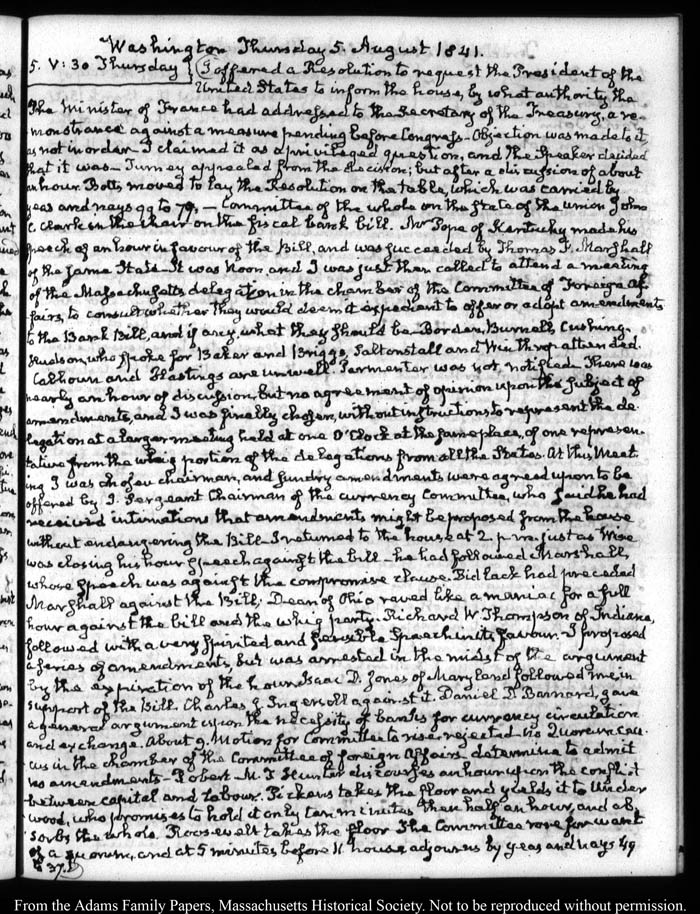 Washington Thursday 5. August 1841.
5. V: 30 Thursday } I offered a Resolution to request the President of the
United States to inform the house, by what authority the
The Minister of France had addressed to the Secretary of the Treasury, a re-
monstrance against a measure pending before Congress - Objection was made to it,
as not in order - I claimed it as a privileged question, and the Speaker decided
that it was - Turney appealed from the decision; but after a discussion of about
an hour Botts moved to lay the Resolution on the table, which was carried by
yeas and nays 99 to 70, — Committee of the whole on the state of the union John
C. Clark in the chair on the fiscal bank bill. Mr Pope of Kentucky made his
speech of an hour in favour of the Bill, and was succeeded by Thomas F. Marshall
of the same State - It was Noon, and I was just then called to attend a meeting
of the Massachusetts delegation in the chamber of the Committee of Foreign Af-
fairs, to consult whether they would deem it expedient to offer or adopt amendments
to the Bank Bill, and if any, what they should be - Borden, Burnell, Cushing,
Hudson, who spoke for Baker and Briggs, Saltonstall and Winthrop attended.
Calhoun and Hastings are unwell. Parmenter was not notified. There was
nearly an hour of discussion, but no agreement of opinion upon the subject of
amendments, and I was finally chosen, without instructions to represent the de-
legation at a larger meeting held at one O'Clock at the same place, of one represen-
tative from the whig portion of the delegations from all the States. At this Meet-
ing I was chosen chairman, and sundry amendments were agreed upon to be
offered by J. Sergeant Chairman of the currency Committee, who said he had
received intimations that amendments might be proposed from the house
without endangering the Bill - I returned to the house at 2 p.m. just as Wise
was closing his hour speech against the bill - he had followed Marshall,
whose speech was against the compromise clause. Bidlack had preceded
Marshall against the Bill; Dean of Ohio raved like a maniac for a full
hour against the bill and the whig party. Richard W Thompson of Indiana,
followed with a very spirited and sensible speech in its favour. I proposed
a series of amendments, but was arrested in the midst of the argument
by the expiration of the hour. Isaac D. Jones of Maryland followed me in
support of the Bill. Charles J. Ingersoll against it. Daniel D. Barnard, gave
a general argument upon the necessity of banks for currency circulation
and exchange. About 9. Motion for Committee to rise rejected. No Quorum Cau-
cus in the chamber of the Committee of foreign Affairs determine to admit
no amendments - Robert M. T Hunter discourses an hour upon the conflict
between capital and labour. Pickens takes the floor and yields it to Under
wood, who promises to hold it only ten minutes then half an hour, and ab-
sorbs the whole. Roosevelt takes the floor The Committee rose for want
of a quorum, and at 5 minutes before 11 house adjourns by yeas and nays 49
to 37.
From the Adams Family Papers, Massachusetts Historical Society. Not to be reproduced without permission.